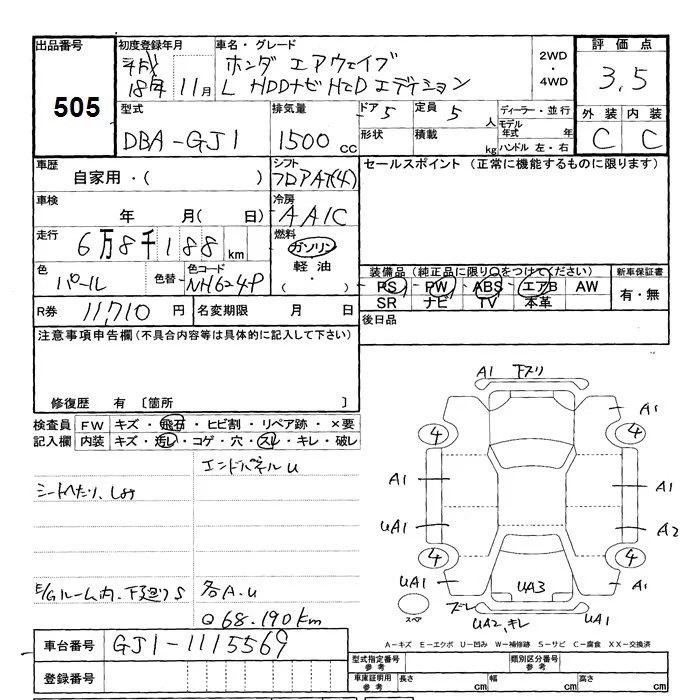 出品番号 初度登録年月 車名・グレード 2WD・4WD 評価点
505
平成18年 11月 ホンダ エアウェイブ
L HDDナビ HIDエディション
3.5
型式 排気量 ドア 5 定員 5人 ディーラー・並行 外装 内装
DBA-GJ1 1500cc 形状 積載 kg モデル年式 年 ハンドル 左・右 C C
車歴 自家用・( ) シフト フロアAT(4) セールスポイント (正常に機能するものに限ります)
車検 年 月( 日) 冷房 AAC
走行 6万8千188km 燃料 ガソリン 軽油 ・( )
色 パール 色替 色コード NH624P
装備品 (純正品に限り○をつけてください) 新車保証書
PS PW ABS エアB AW 有・無
SR ナビ TV 本革
R券 11,710円 名変期限 月 日 後日品
注意事項申告欄 (不具合内容等は具体的に記入して下さい)
修復歴 有 〔箇所 〕
検査員記入欄 FW キズ・飛石・ヒビ割・リペア跡・×要
内装 キズ・汚レ・コゲ・穴・スレ・キレ・破レ
エンドパネルU
シートへたり、しみ
E/Gルーム内、下廻りS 各A.U
Q 68.190km
A1 下スリ
A1
4 4
A1 A1
UA1 A2
4 4
UA1 UA3 A1
スペア ズレ UA2,キレ UA1
車台番号 GJ1-1115569
登録番号
A－キズ E－エクボ U－凹み W－補修跡 S－サビ C－腐食 XX－交換済
型式指定番号 参考 類別区分番号 参考
車庫証明用 参考 長さ cm 幅 cm 高さ cm